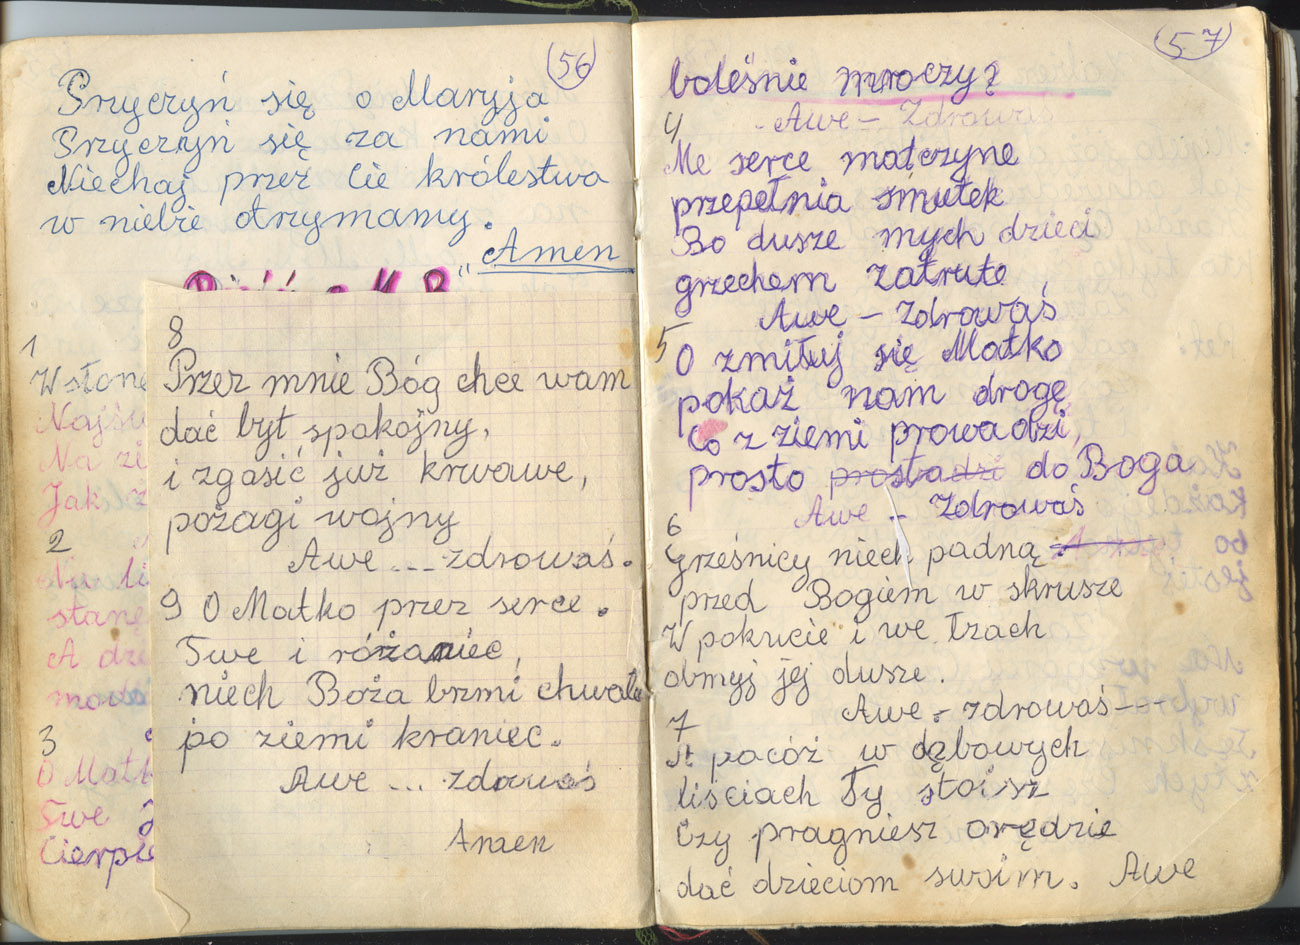 (56)
Przyczyń się o Maryja
Przyczyń się za nami
Niechaj przez Cie królestwo
w niebie otrzymamy.
"Amen
Pieśń o M.B.
1
W słone
Najśw
Na zi
Jak z
2
Na li
stanę
A dzi
modli
3
O Matk
Twe
Cierpie
8
Przez mnie Bóg chce wam
dać byt spokojny,
i zgasić już krwawe,
pożagi wojny
Awe ... zdrowaś.
9 O Matko przez serce.
Twe i różaniec,
niech Boża brzmi chwała
po ziemi kraniec.
Awe ... zdrowaś
Amen
(57)
boleśnie mroczy?
4 Awe - Zdrowaś
Me serce matczyne
przepełnia smutek
Bo dusze mych dzieci
grzechem zatruto,
Awe - Zdrowaś
5 O zmiłuj się Matko
pokaż nam drogę
Co z ziemi prowadzi,
prosto prostadzi do Boga
Awe - Zdrowaś
6
Grześnicy niech padną
przed Bogiem w skrusze
W pokucie i we łzach
obmyj jej dusze.
Awe - zdrowaś--
7
A pocóż w dębowych
liściach Ty stoisz
Czy pragniesz orędzie
dać dzieciom swoim. Awe